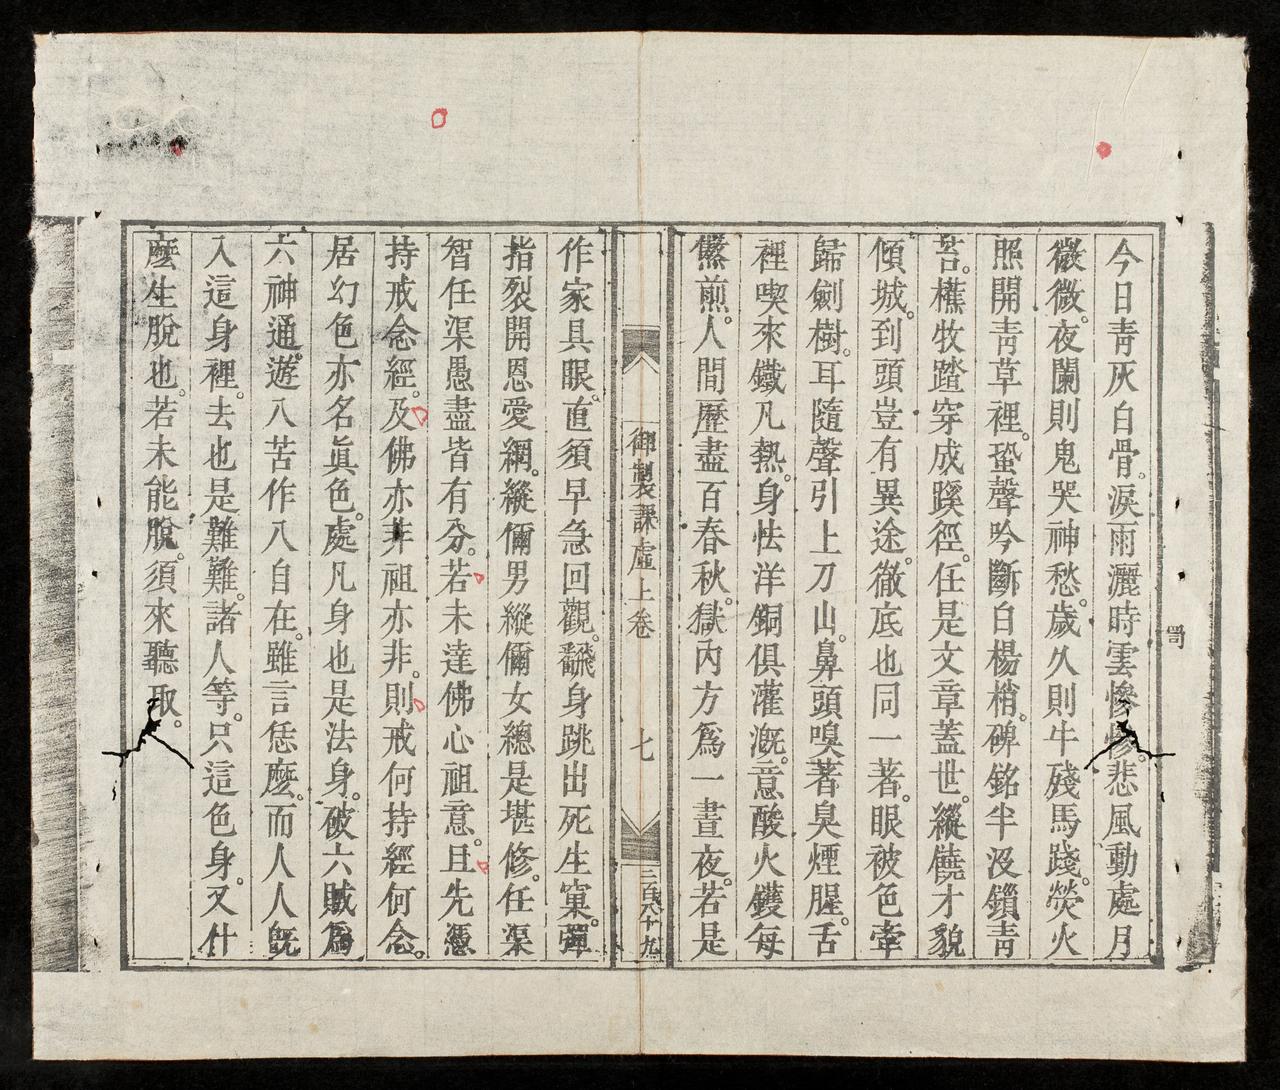 今日靑灰白骨。淚雨灑時雲慘慘。悲風動處月
微微。夜闌則鬼哭神愁。歲久則牛殘馬踐。熒火
照開靑草裡。蛩聲吟斷白楊梢。碑銘半沒鎖靑
苔。樵牧踏穿成蹊徑。任是文章蓋世。縱饒才貌
傾城。到頭豈有異途。徹底也同一著。眼被色牽
歸劍樹。耳隨聲引上刀山。鼻頭嗅著臭煙腥。舌
裡喫來鐵凡熱。身怯洋銅俱灌漑。意酸火鑊每
煎。人間歷盡百春秋。獄內方爲一晝夜。若是
御製課虛上卷 七 三百八十九
作家具眼。直須早急回觀。飜身跳出死生窠。彈
指裂開恩愛網。縱儞男縱儞女總是堪修。任渠
智任渠愚盡皆有分。若未達佛心祖意。且先憑
持戒念經。及佛亦非祖亦非。則戒何持經何念。
居幻色亦名眞色。處凡身也是法身。破六賊爲
六神通。遊八苦作八自在。雖言恁麽。而人人旣
入這身裡。去也是難難。諸人等。只這色身。又什
麽生脫也。若未能脫。須來聽取。